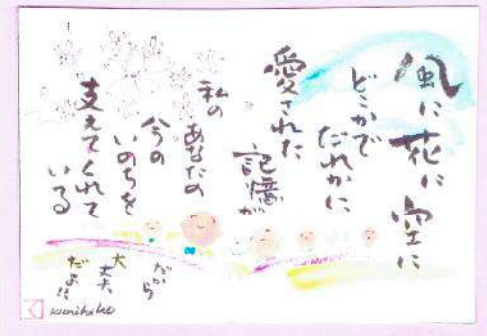 風に花に空に
どこかで
だれかに
愛された
記憶が
私の
あなたの
今の
いのちを
支えてくれて
いる
だから
大丈夫
だよ!!
kunihiko